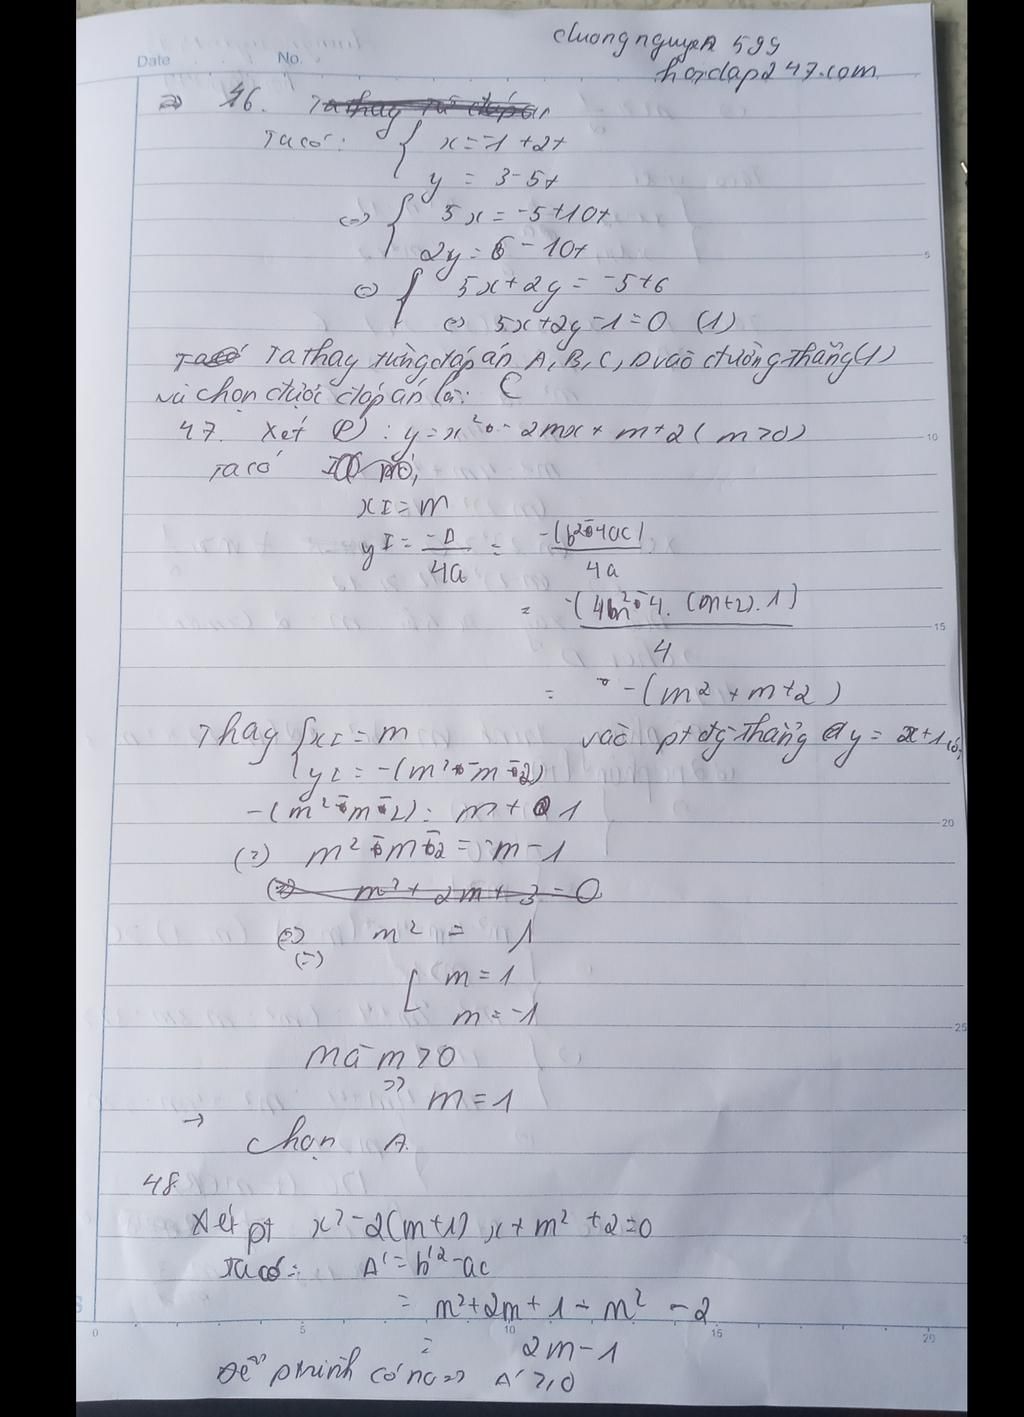 duongnguyen 599
hoidap247.com
Date No.
⇒ 46.
Ta có: { x = -1 + 2t
y = 3 - 5t
⇔ { 5x = -5 + 10t
2y = 6 - 10t
⇔ { 5x + 2y = -5 + 6
⇔ 5x + 2y - 1 = 0 (1)
Ta thay từng đáp án A, B, C, D vào đường thẳng (1)
và chọn được đáp án là: C
47. Xét (P): y = x² - 2mx + m + 2 (m > 0)
Ta có
xI = m
yI = -Δ/4a = -(b² - 4ac)/4a
= -(4m² - 4.(m+2).1)/4
= -(m² + m + 2)
Thay { xI = m vào pt đg thẳng y = x + 1 có,
yI = -(m² - m - 2)
-(m² - m - 2) = m + 1
(=) m² - m - 2 = -m - 1
(=) m² = 1
(=)
[ m = 1
m = -1
Mà m > 0
⇒ m = 1
→
Chọn A.
48.
Xét pt x² - 2(m+1)x + m² + 2 = 0
Ta có: Δ' = b'² - ac
= m² + 2m + 1 - m² - 2
= 2m - 1
Để ptrình có no => Δ' ≥ 0
5
10
15
20
25
0 5 10 15 20